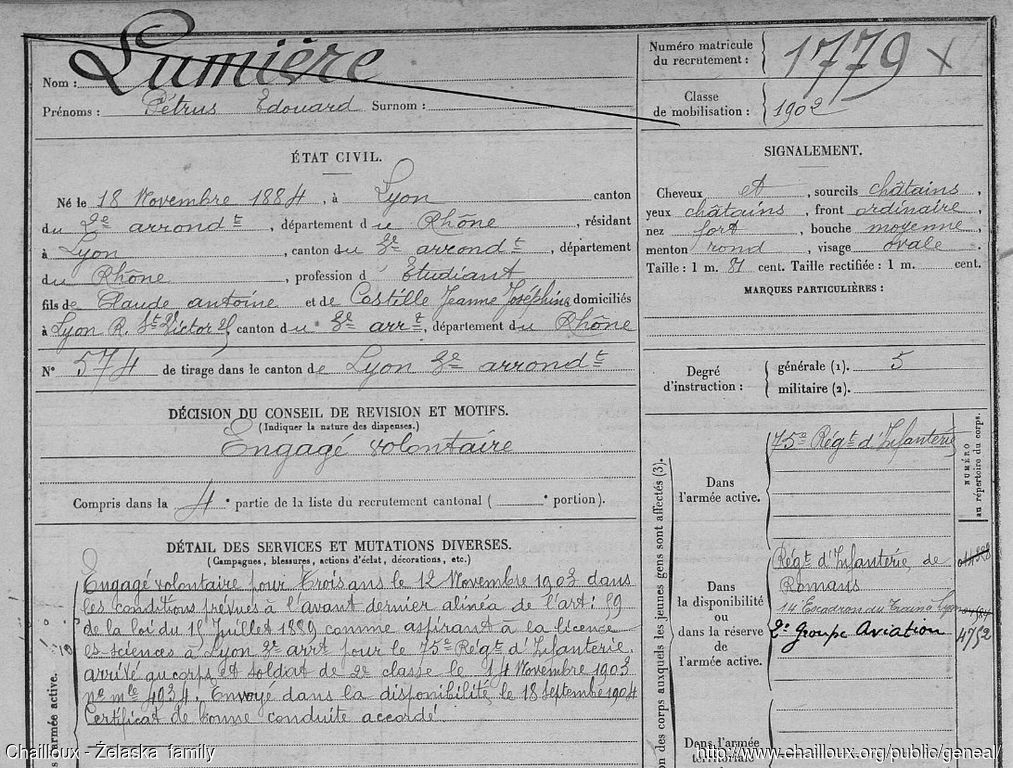 Nom : Lumière
Prénoms : Pétrus Edouard Surnom :
Numéro matricule
du recrutement : 1779
Classe
de mobilisation : 1902
ÉTAT CIVIL.
Né le 18 Novembre 1884, à Lyon canton
du 2e arrondt, département du Rhône, résidant
à Lyon, canton du 2e arrondt, département
du Rhône, profession d' Etudiant
fils de Claude antoine et de Costille Jeanne Joséphine domiciliés
à Lyon R. St Victor, canton du 2e arrt, département du Rhône
N° 574 de tirage dans le canton de Lyon 2e arrondt
SIGNALEMENT.
Cheveux et, sourcils châtains,
yeux châtains, front ordinaire
nez fort, bouche moyenne,
menton rond, visage ovale.
Taille : 1 m. 81 cent. Taille rectifiée : 1 m. cent.
MARQUES PARTICULIÈRES :
Degré
d'instruction :
générale (1). 5
militaire (2).
DÉCISION DU CONSEIL DE REVISION ET MOTIFS.
(Indiquer la nature des dispenses.)
Engagé volontaire
Compris dans la 4e partie de la liste du recrutement cantonal ( e portion).
DÉTAIL DES SERVICES ET MUTATIONS DIVERSES.
(Campagnes, blessures, actions d'éclat, décorations, etc.)
Engagé volontaire pour trois ans le 12 Novembre 1903 dans
les conditions prévues à l'avant dernier alinéa de l'art: 59
de la loi du 15 Juillet 1889 comme aspirant à la licence
es-sciences à Lyon 2e arrt pour le 75e Régt d'Infanterie.
arrivé au corps et soldat de 2e classe le 14 Novembre 1903
no mle 4934. Envoyé dans la disponibilité le 18 Septembre 1904
Certificat de bonne conduite accordé
armée active.
on des corps auxquels les jeunes gens sont affectés (3).
NUMÉRO
au répertoire du corps.
Dans
l'armée active.
75e Régt d'Infanterie
Dans
la disponibilité
ou
dans la réserve
de
l'armée active.
Régt d'Infanterie de
Romans
14 Escadron du Train à Lyon
2e Groupe Aviation 4752
Dans l'armée
territoriale
Chailloux - Żelaska family
http://www.chailloux.org/public/geneal/